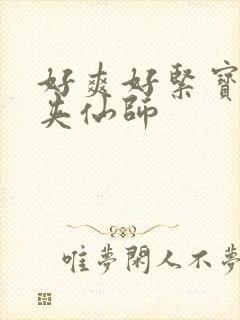 好爽好緊寶
央仙師
唯夢閑人不夢